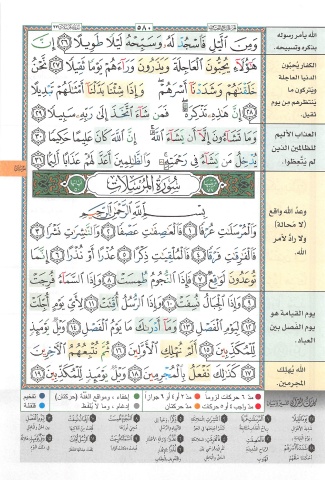 ٥٨٠
وَمِنَ ٱلَّيۡلِ فَٱسۡجُدۡ لَهُۥ وَسَبِّحۡهُ لَيۡلٗا طَوِيلًا ٢٦ إِنَّ
هَٰٓؤُلَآءِ يُحِبُّونَ ٱلۡعَاجِلَةَ وَيَذَرُونَ وَرَآءَهُمۡ يَوۡمٗا ثَقِيلٗا ٢٧ نَّحۡنُ
خَلَقۡنَٰهُمۡ وَشَدَدۡنَآ أَسۡرَهُمۡۖ وَإِذَا شِئۡنَا بَدَّلۡنَآ أَمۡثَٰلَهُمۡ تَبۡدِيلًا
٢٨ إِنَّ هَٰذِهِۦ تَذۡكِرَةٞۖ فَمَن شَآءَ ٱتَّخَذَ إِلَىٰ رَبِّهِۦ سَبِيلٗا ٢٩
وَمَا تَشَآءُونَ إِلَّآ أَن يَشَآءَ ٱللَّهُۚ إِنَّ ٱللَّهَ كَانَ عَلِيمًا حَكِيمٗا ٣٠
يُدۡخِلُ مَن يَشَآءُ فِي رَحۡمَتِهِۦۚ وَٱلظَّٰلِمِينَ أَعَدَّ لَهُمۡ عَذَابًا أَلِيمَۢا ٣١
سُورَةُ المُرۡسَلَاتِ
بِسۡمِ ٱللَّهِ ٱلرَّحۡمَٰنِ ٱلرَّحِيمِ
وَٱلۡمُرۡسَلَٰتِ عُرۡفٗا ١ فَٱلۡعَٰصِفَٰتِ عَصۡفٗا ٢ وَٱلنَّٰشِرَٰتِ نَشۡرٗا ٣
فَٱلۡفَٰرِقَٰتِ فَرۡقٗا ٤ فَٱلۡمُلۡقِيَٰتِ ذِكۡرًا ٥ عُذۡرًا أَوۡ نُذۡرًا ٦ إِنَّمَا
تُوعَدُونَ لَوَٰقِعٞ ٧ فَإِذَا ٱلنُّجُومُ طُمِسَتۡ ٨ وَإِذَا ٱلسَّمَآءُ فُرِجَتۡ
٩ وَإِذَا ٱلۡجِبَالُ نُسِفَتۡ ١٠ وَإِذَا ٱلرُّسُلُ أُقِّتَتۡ ١١ لِأَيِّ يَوۡمٍ أُجِّلَتۡ
١٢ لِيَوۡمِ ٱلۡفَصۡلِ ١٣ وَمَآ أَدۡرَىٰكَ مَا يَوۡمُ ٱلۡفَصۡلِ ١٤ وَيۡلٞ يَوۡمَئِذٖ
لِّلۡمُكَذِّبِينَ ١٥ أَلَمۡ نُهۡلِكِ ٱلۡأَوَّلِينَ ١٦ ثُمَّ نُتۡبِعُهُمُ ٱلۡأٓخِرِينَ
١٧ كَذَٰلِكَ نَفۡعَلُ بِٱلۡمُجۡرِمِينَ ١٨ وَيۡلٞ يَوۡمَئِذٖ لِّلۡمُكَذِّبِينَ ١٩
الله يأمر رسوله
بذكره وتسبيحه.
الكفار يحبّون
الدنيا العاجلة
ويتركون ما
ينتظرهم من يوم
ثقيل.
العذاب الأليم
للظالمين الذين
لم يتّعظوا.
وعدُ الله واقع
(لا محالة)
ولا رادّ لأمر
الله.
يوم القيامة هو
يوم الفصل بين
العباد.
الله يُهلك
المجرمين.
مدّ ٦ حركات لزوماً
مدّ ٢ أو ٤ أو ٦ جوازاً
إخفاء، ومواقع الغُنَّة (حركتان)
تفخيم
مدّ واجب ٤ أو ٥ حركات
مدّ حركتان
إدغام، وما لا يُلفظ
قلقلة